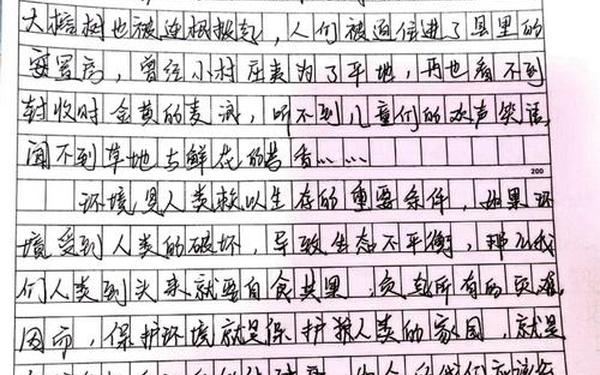 大榕树也被连根拔起，人们被迫住进了县里的
安置房，曾经小村庄夷为了平地，再也看不到
秋收时金黄的麦浪，听不到儿童们的欢声笑语，
闻不到草地与鲜花的芳香……
200
环境是人类赖以生存的重要条件，如果环
境受到人类的破坏，导致生态不平衡，那么我
们人类到头来就要自食其果，负起所有的灾难。
因而，保护环境就是保护人类的家园，就是